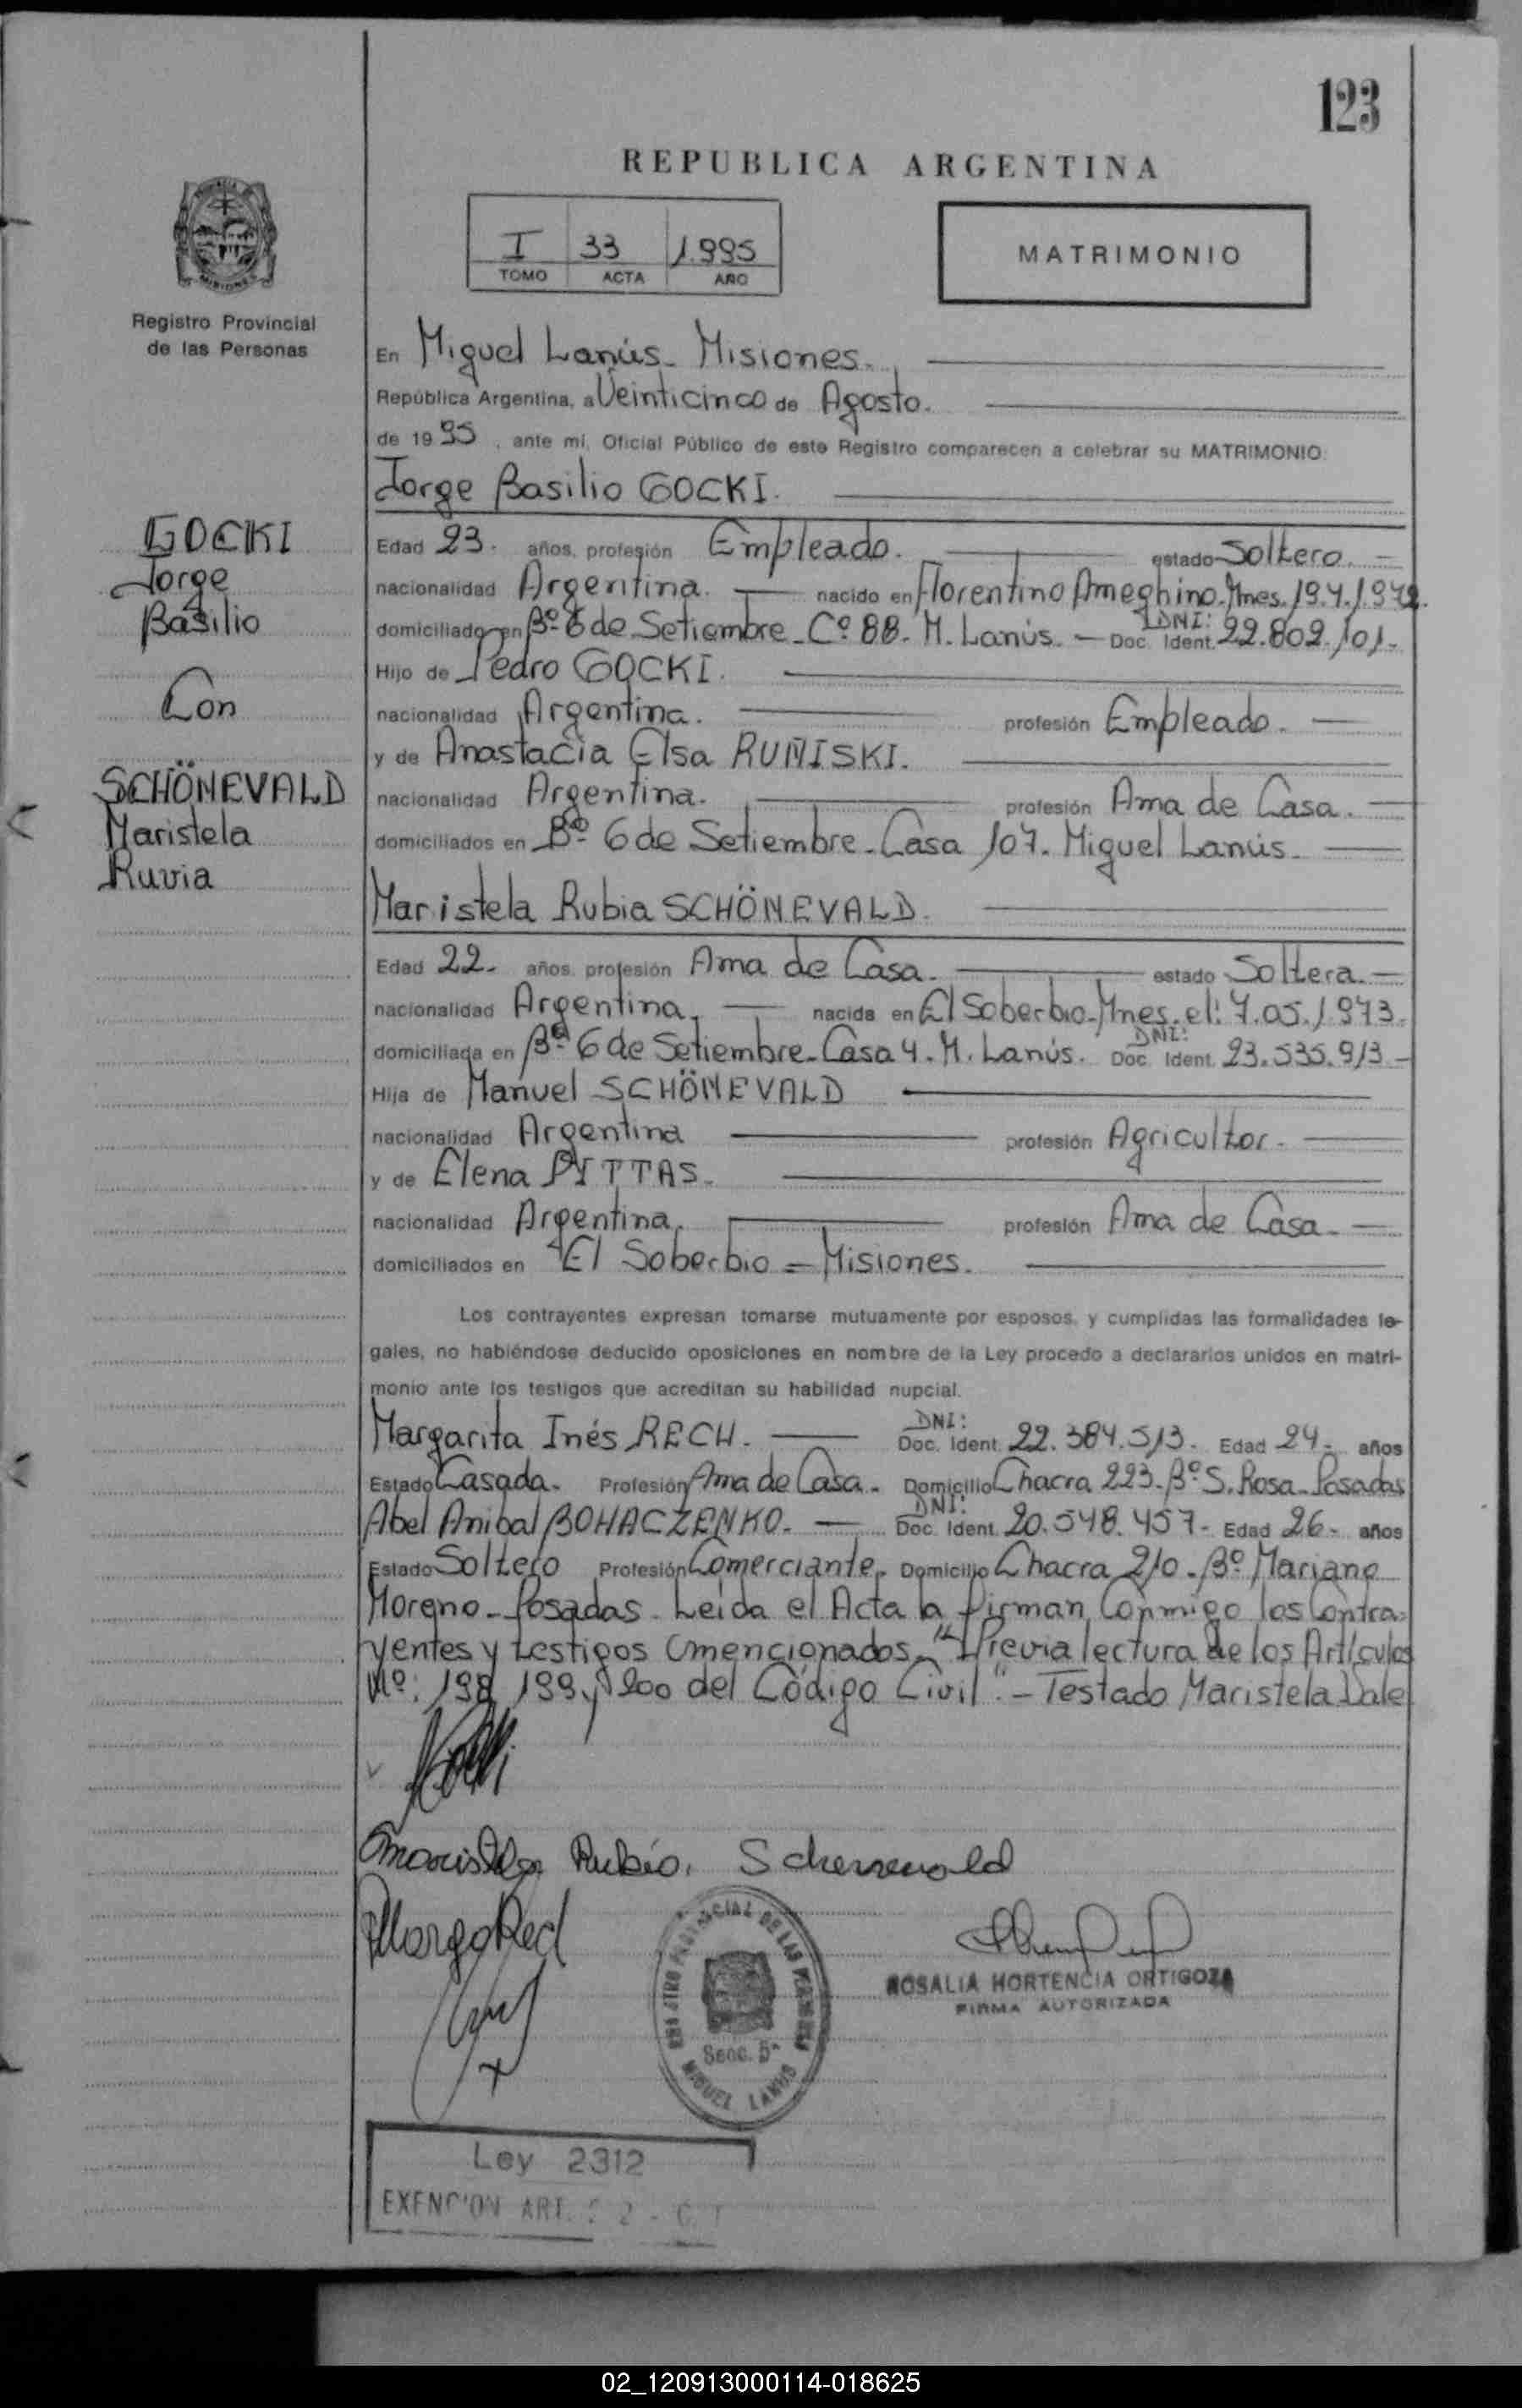 123
REPUBLICA ARGENTINA
I 33 1.995
TOMO ACTA AÑO
MATRIMONIO
MISIONES
Registro Provincial
de las Personas
En Miguel Lanús - Misiones.
República Argentina, a Veinticinco de Agosto.
de 1995, ante mí, Oficial Público de este Registro comparecen a celebrar su MATRIMONIO:
Jorge Basilio GOCKI.
GOCKI
Jorge
Basilio
Con
SCHÖNEVALD
Maristela
Ruvia
Edad 23. años, profesión Empleado. estado Soltero.
nacionalidad Argentina. nacido en Florentino Ameghino. Mnes. 19.4.1972.
domiciliado en Bº 6 de Setiembre - Cº 88 - M. Lanús. - DNI: Doc. Ident. 22.802.101-
Hijo de Pedro GOCKI.
nacionalidad Argentina. profesión Empleado.
y de Anastacia Elsa RUÑISKI.
nacionalidad Argentina. profesión Ama de Casa.
domiciliados en Bº 6 de Setiembre - Casa 107. Miguel Lanús -
Maristela Rubia SCHÖNEVALD.
Edad 22- años, profesión Ama de Casa. estado Soltera.
nacionalidad Argentina. nacida en El Soberbio - Mnes. el: 7.05.1973.
domiciliada en Bº 6 de Setiembre - Casa 4. M. Lanús. DNI: Doc. Ident. 23.535.913 -
Hija de Manuel SCHÖNEVALD
nacionalidad Argentina profesión Agricultor.
y de Elena PITTAS.
nacionalidad Argentina. profesión Ama de Casa.
domiciliados en El Soberbio = Misiones.
Los contrayentes expresan tomarse mutuamente por esposos, y cumplidas las formalidades le-
gales, no habiéndose deducido oposiciones en nombre de la Ley procedo a declararlos unidos en matri-
monio ante los testigos que acreditan su habilidad nupcial.
Margarita Inés RECH. DNI: Doc. Ident. 22.384.513. Edad 24. años
Estado Casada. Profesión Ama de Casa. Domicilio Chacra 223. Bº S. Rosa - Posadas
Abel Anibal BOHACZENKO. DNI: Doc. Ident. 20.548.457- Edad 26- años
Estado Soltero Profesión Comerciante. Domicilio Chacra 210. Bº Mariano
Moreno - Posadas - Leida el Acta la firman Conmigo los Contra-
yentes y testigos mencionados. "Previa lectura de los Artículos
Nº: 198, 199, y 200 del Código Civil". - Testado Maristela Vale
Maristela Rubia. Schenevald
REGISTRO PROVINCIAL DE LAS PERSONAS
Secc. 5ª
MIGUEL LANUS
ROSALIA HORTENCIA ORTIGOZA
FIRMA AUTORIZADA
Ley 2312
EXENCION ART.
02_120913000114-018625